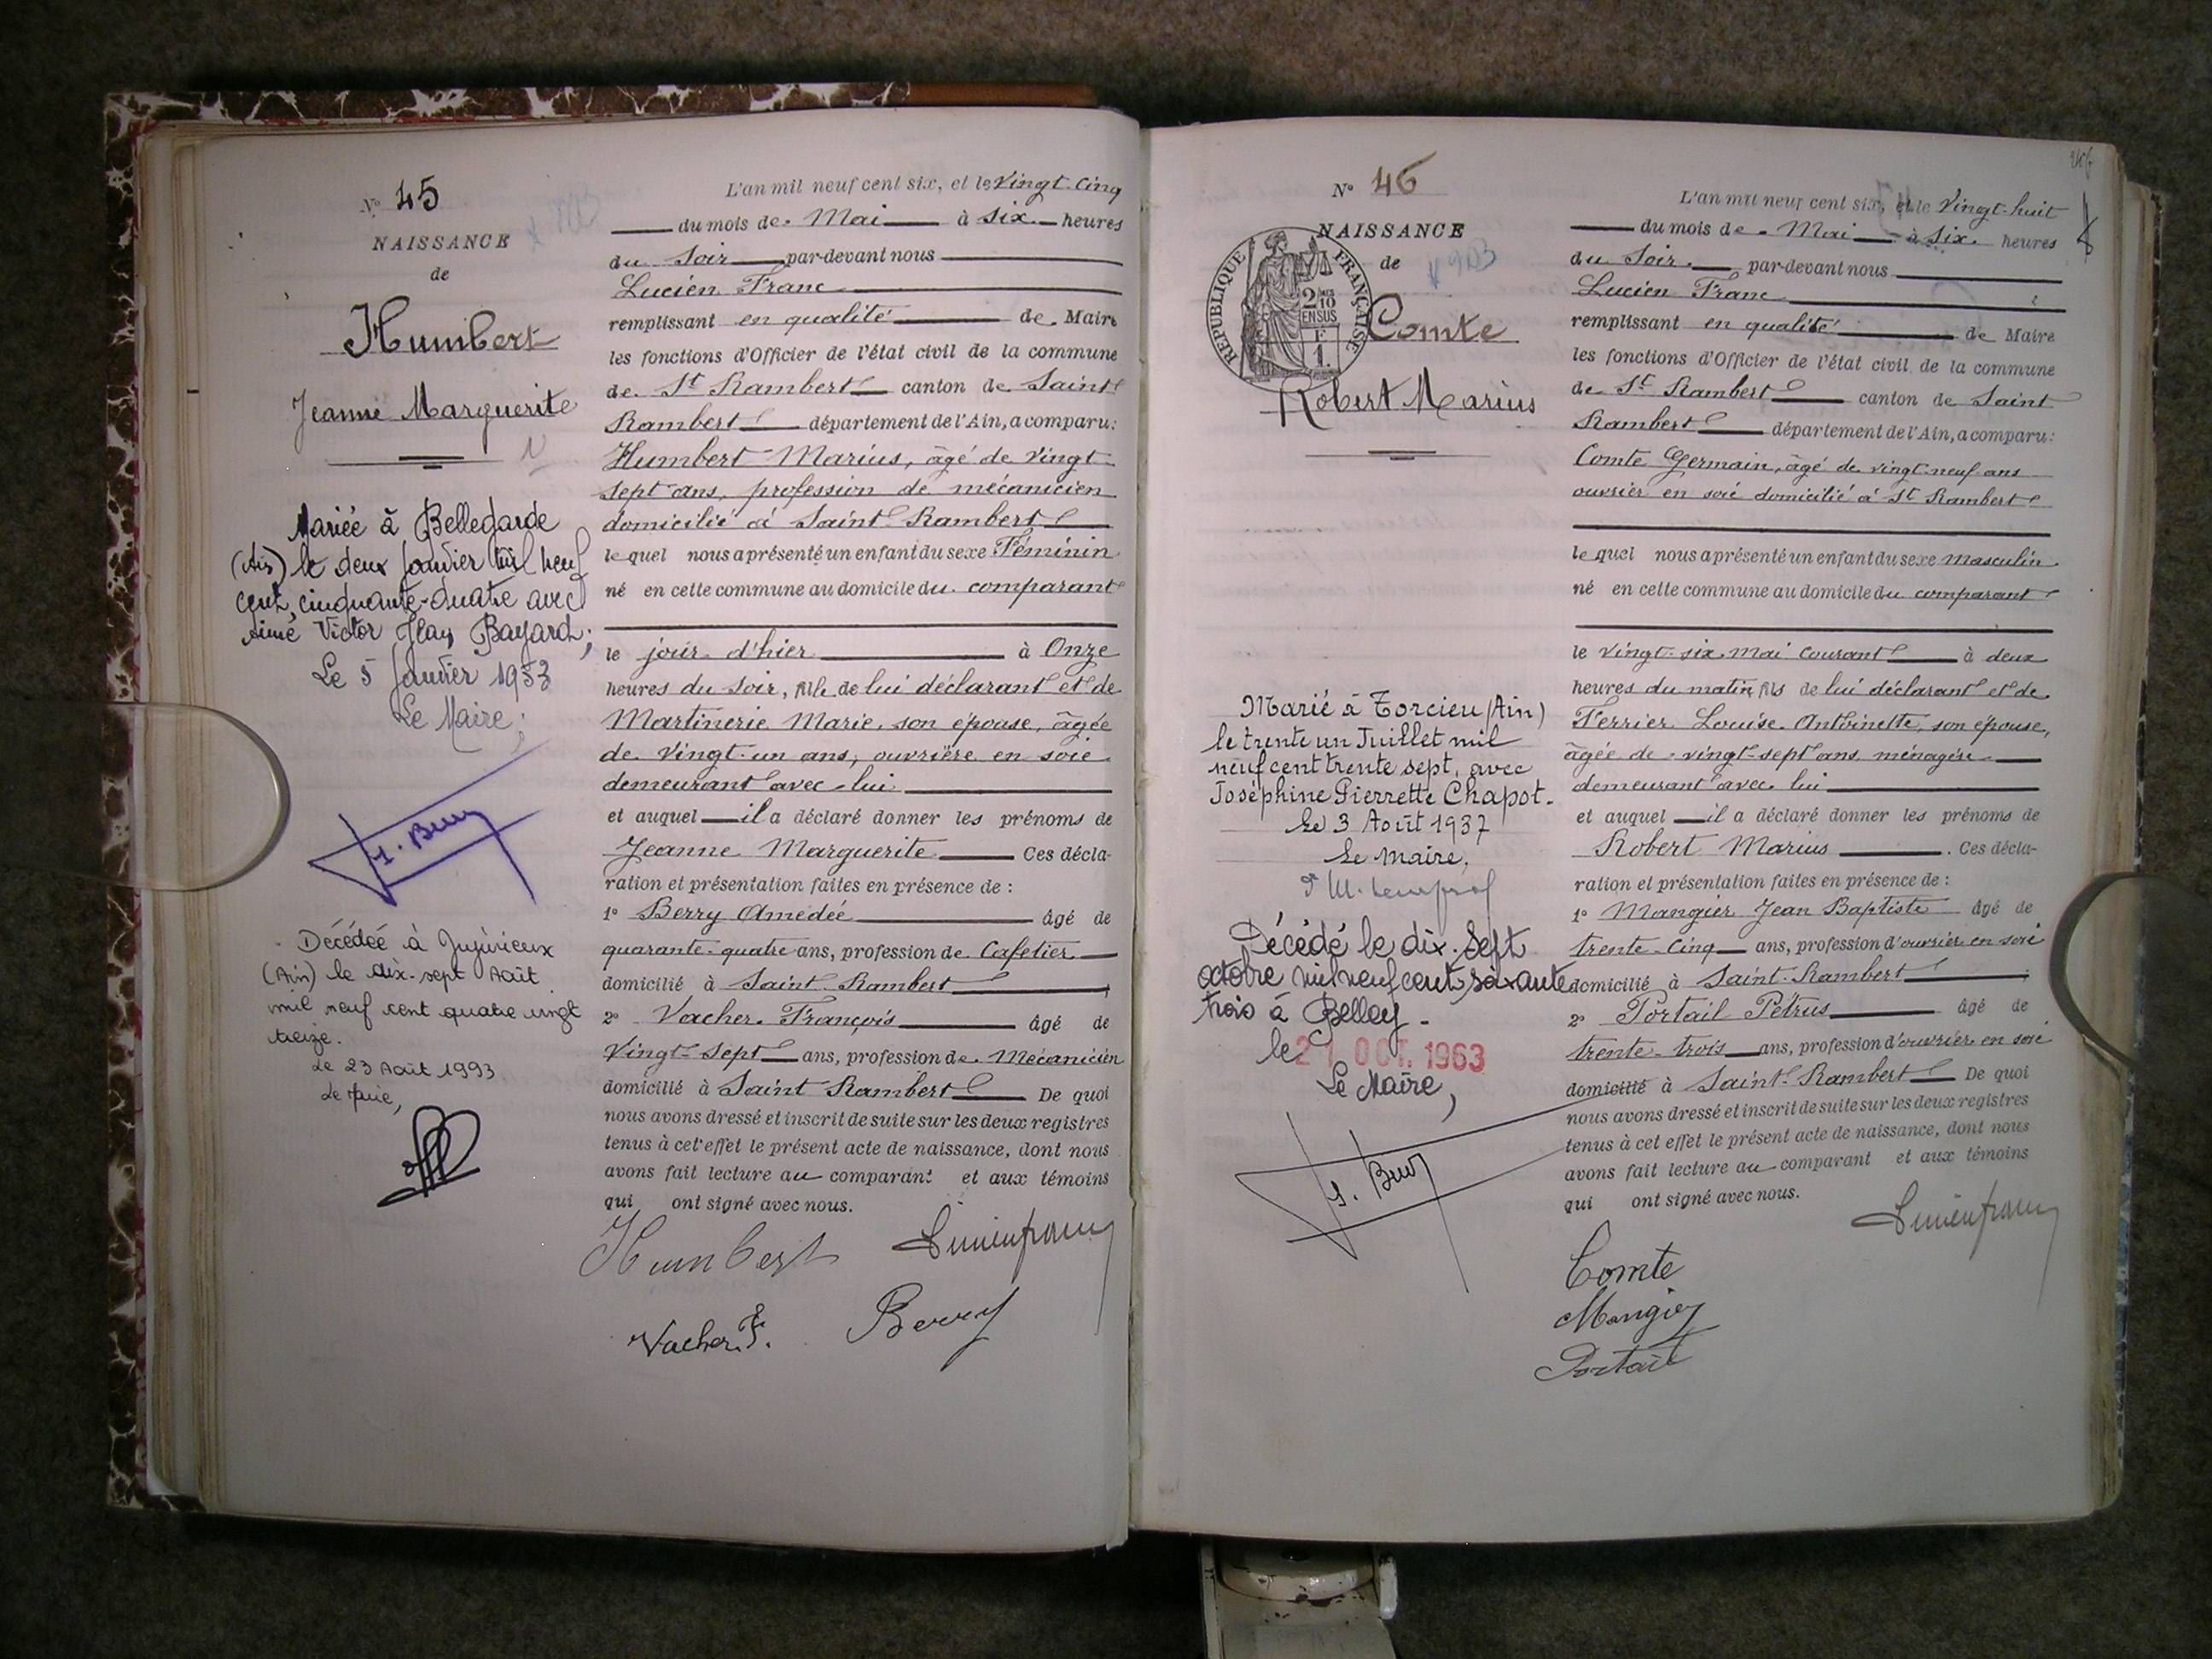 N° 45
NAISSANCE
de
Humbert
Jeanne Marguerite
Mariée à Bellegarde
(Ain) le deux Janvier mil neuf
cent cinquante-quatre avec
Aimé Victor Bayard;
Le 5 Janvier 1953
Le Maire;
Décédée à Jujurieux
(Ain) le dix-sept Août
mil neuf cent quatre vingt
treize.
Le 23 Août 1993
Le Maire,
L'an mil neuf cent six, et le Vingt-cinq
du mois de Mai à six heures
du Soir par-devant nous
Lucien Franc
remplissant en qualité de Maire
les fonctions d'Officier de l'état civil de la commune
de St Rambert canton de Saint
Rambert département de l'Ain, a comparu:
Humbert Marius, âgé de vingt
sept ans, profession de mécanicien
domicilié à Saint-Rambert
le quel nous a présenté un enfant du sexe Féminin
né en cette commune au domicile du comparant
le jour d'hier à Onze
heures du soir, fille de lui déclarant et de
Martinerie Marie, son épouse, âgée
de vingt-un ans, ouvrière en soie
demeurant avec lui
et auquel il a déclaré donner les prénoms de
Jeanne Marguerite Ces décla-
ration et présentation faites en présence de :
1° Berry Amédée âgé de
quarante-quatre ans, profession de Cafetier
domicilié à Saint-Rambert
2° Vacher François âgé de
Vingt-sept ans, profession de Mécanicien
domicilié à Saint Rambert De quoi
nous avons dressé et inscrit de suite sur les deux registres
tenus à cet effet le présent acte de naissance, dont nous
avons fait lecture au comparant et aux témoins
qui ont signé avec nous.
Humbert Lucien franc
Vacher F. Berry
N° 46
NAISSANCE
de
REPUBLIQUE FRANÇAISE
2/10
EN SUS
F
1.
Comte
Robert Marius
Marié à Torcieu (Ain)
le trente un Juillet mil
neuf cent trente sept, avec
Joséphine Pierrette Chapot.
Le 3 Août 1937
Le Maire,
Décédé le dix-sept
octobre mil neuf cent soixante
trois à Belley.
le 21 OCT. 1963
Le Maire,
L'an mil neuf cent six, et le Vingt-huit
du mois de Mai à six heures
du Soir par-devant nous
Lucien Franc
remplissant en qualité de Maire
les fonctions d'Officier de l'état civil de la commune
de St Rambert canton de Saint
Rambert département de l'Ain, a comparu:
Comte Germain, âgé de vingt-neuf ans
ouvrier en soie domicilié à St Rambert
le quel nous a présenté un enfant du sexe masculin
né en cette commune au domicile du comparant
le vingt-six mai courant à deux
heures du matin, fils de lui déclarant et de
Ferrier Louise Antoinette, son épouse,
âgée de vingt-sept ans, ménagère
demeurant avec lui
et auquel il a déclaré donner les prénoms de
Robert Marius. Ces décla-
ration et présentation faites en présence de :
1° Mangier Jean Baptiste âgé de
trente-cinq ans, profession d'ouvrier en soie
domicilié à Saint-Rambert
2° Portail Pétrus âgé de
trente-trois ans, profession d'ouvrier en soie
domicilié à Saint-Rambert De quoi
nous avons dressé et inscrit de suite sur les deux registres
tenus à cet effet le présent acte de naissance, dont nous
avons fait lecture au comparant et aux témoins
qui ont signé avec nous.
Lucien franc
Comte
Mangier
Portail